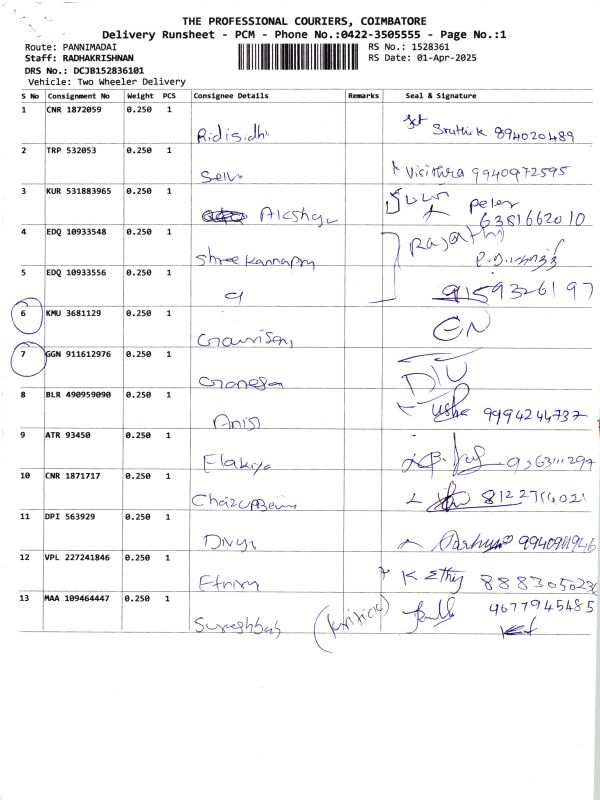 THE PROFESSIONAL COURIERS, COIMBATORE
Delivery Runsheet - PCM - Phone No.:0422-3505555 - Page No.:1
Route: PANNIMADAI RS No.: 1528361
Staff: RADHAKRISHNAN RS Date: 01-Apr-2025
DRS No.: DCJB152836101
Vehicle: Two Wheeler Delivery
S No Consignment No Weight PCS Consignee Details Remarks Seal & Signature
1 CNR 1872059 0.250 1
Ridisidhi Sruthik 894020489
2 TRP 532053 0.250 1
Selvi Visithra 9940972595
3 KUR 531883965 0.250 1
Akshaya peter
6381662010
4 EDQ 10933548 0.250 1
Shree Kannapm
5 EDQ 10933556 0.250 1
9159326197
6 KMU 3681129 0.250 1
7 GGN 911612976 0.250 1
Ganesa
8 BLR 490959090 0.250 1
Anisi Usha 9994244737
9 ATR 93450 0.250 1
Elakiya
10 CNR 1871717 0.250 1
11 DPI 563929 0.250 1
Divya
12 VPL 227241846 0.250 1
K Ethij
13 MAA 109464447 0.250 1
9677945485
Sureshbab